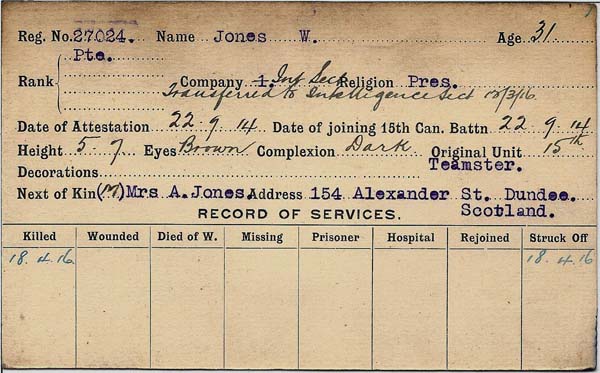 Reg. No. 27024. Name Jones W. Age 31
Pte.
Rank Company 1. Int Sect Religion Pres.
Transferred to Intelligence Sect 10/3/16
Date of Attestation 22.9.14 Date of joining 15th Can. Battn 22.9.14
Height 5.7 Eyes Brown Complexion Dark Original Unit 15th
Decorations Teamster.
Next of Kin (M) Mrs A. Jones. Address 154 Alexander St. Dundee.
Scotland.
RECORD OF SERVICES.
Killed Wounded Died of W. Missing Prisoner Hospital Rejoined Struck Off
18.4.16 18.4.16